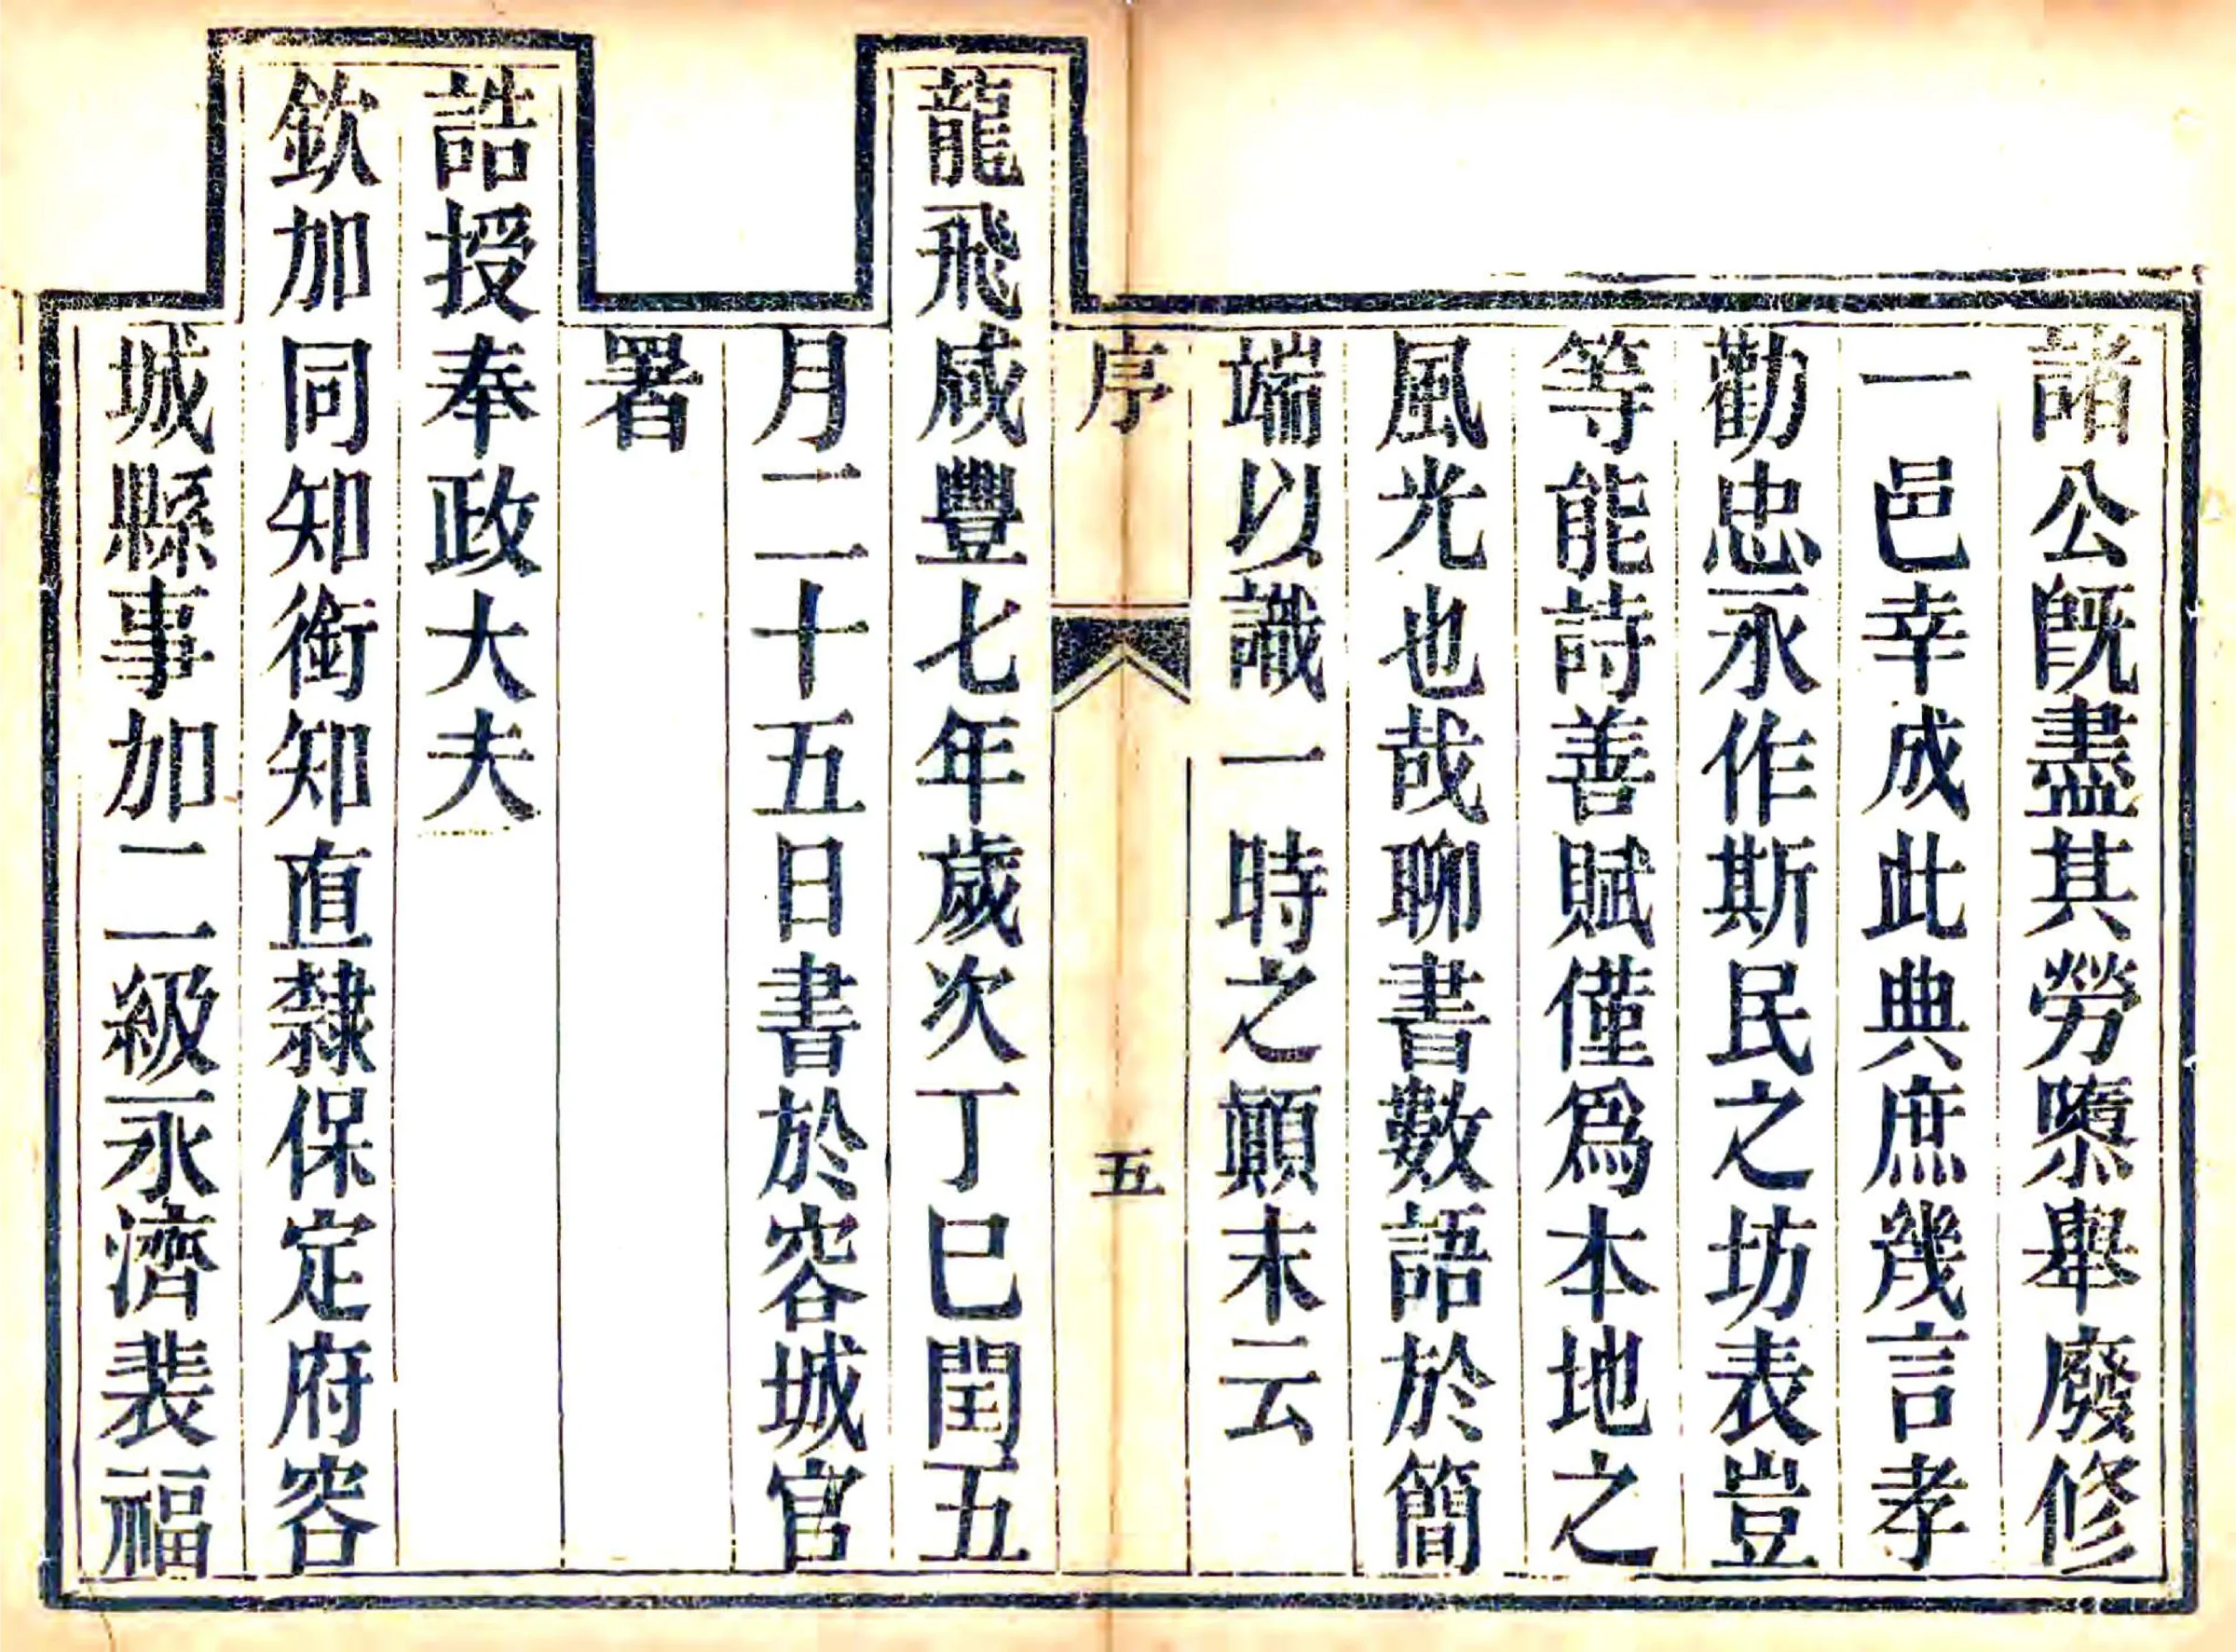 諸公既盡其勞隳舉廢修
一邑幸成此典庶幾言孝
勸忠永作斯民之坊表豈
等能詩善賦僅爲本地之
風光也哉聊書數語於簡
端以識一時之顛末云
序
五
龍飛咸豐七年歲次丁巳閏五
月二十五日書於容城官
署
誥授奉政大夫
欽加同知銜知直隸保定府容
城縣事加二級永濟裴福